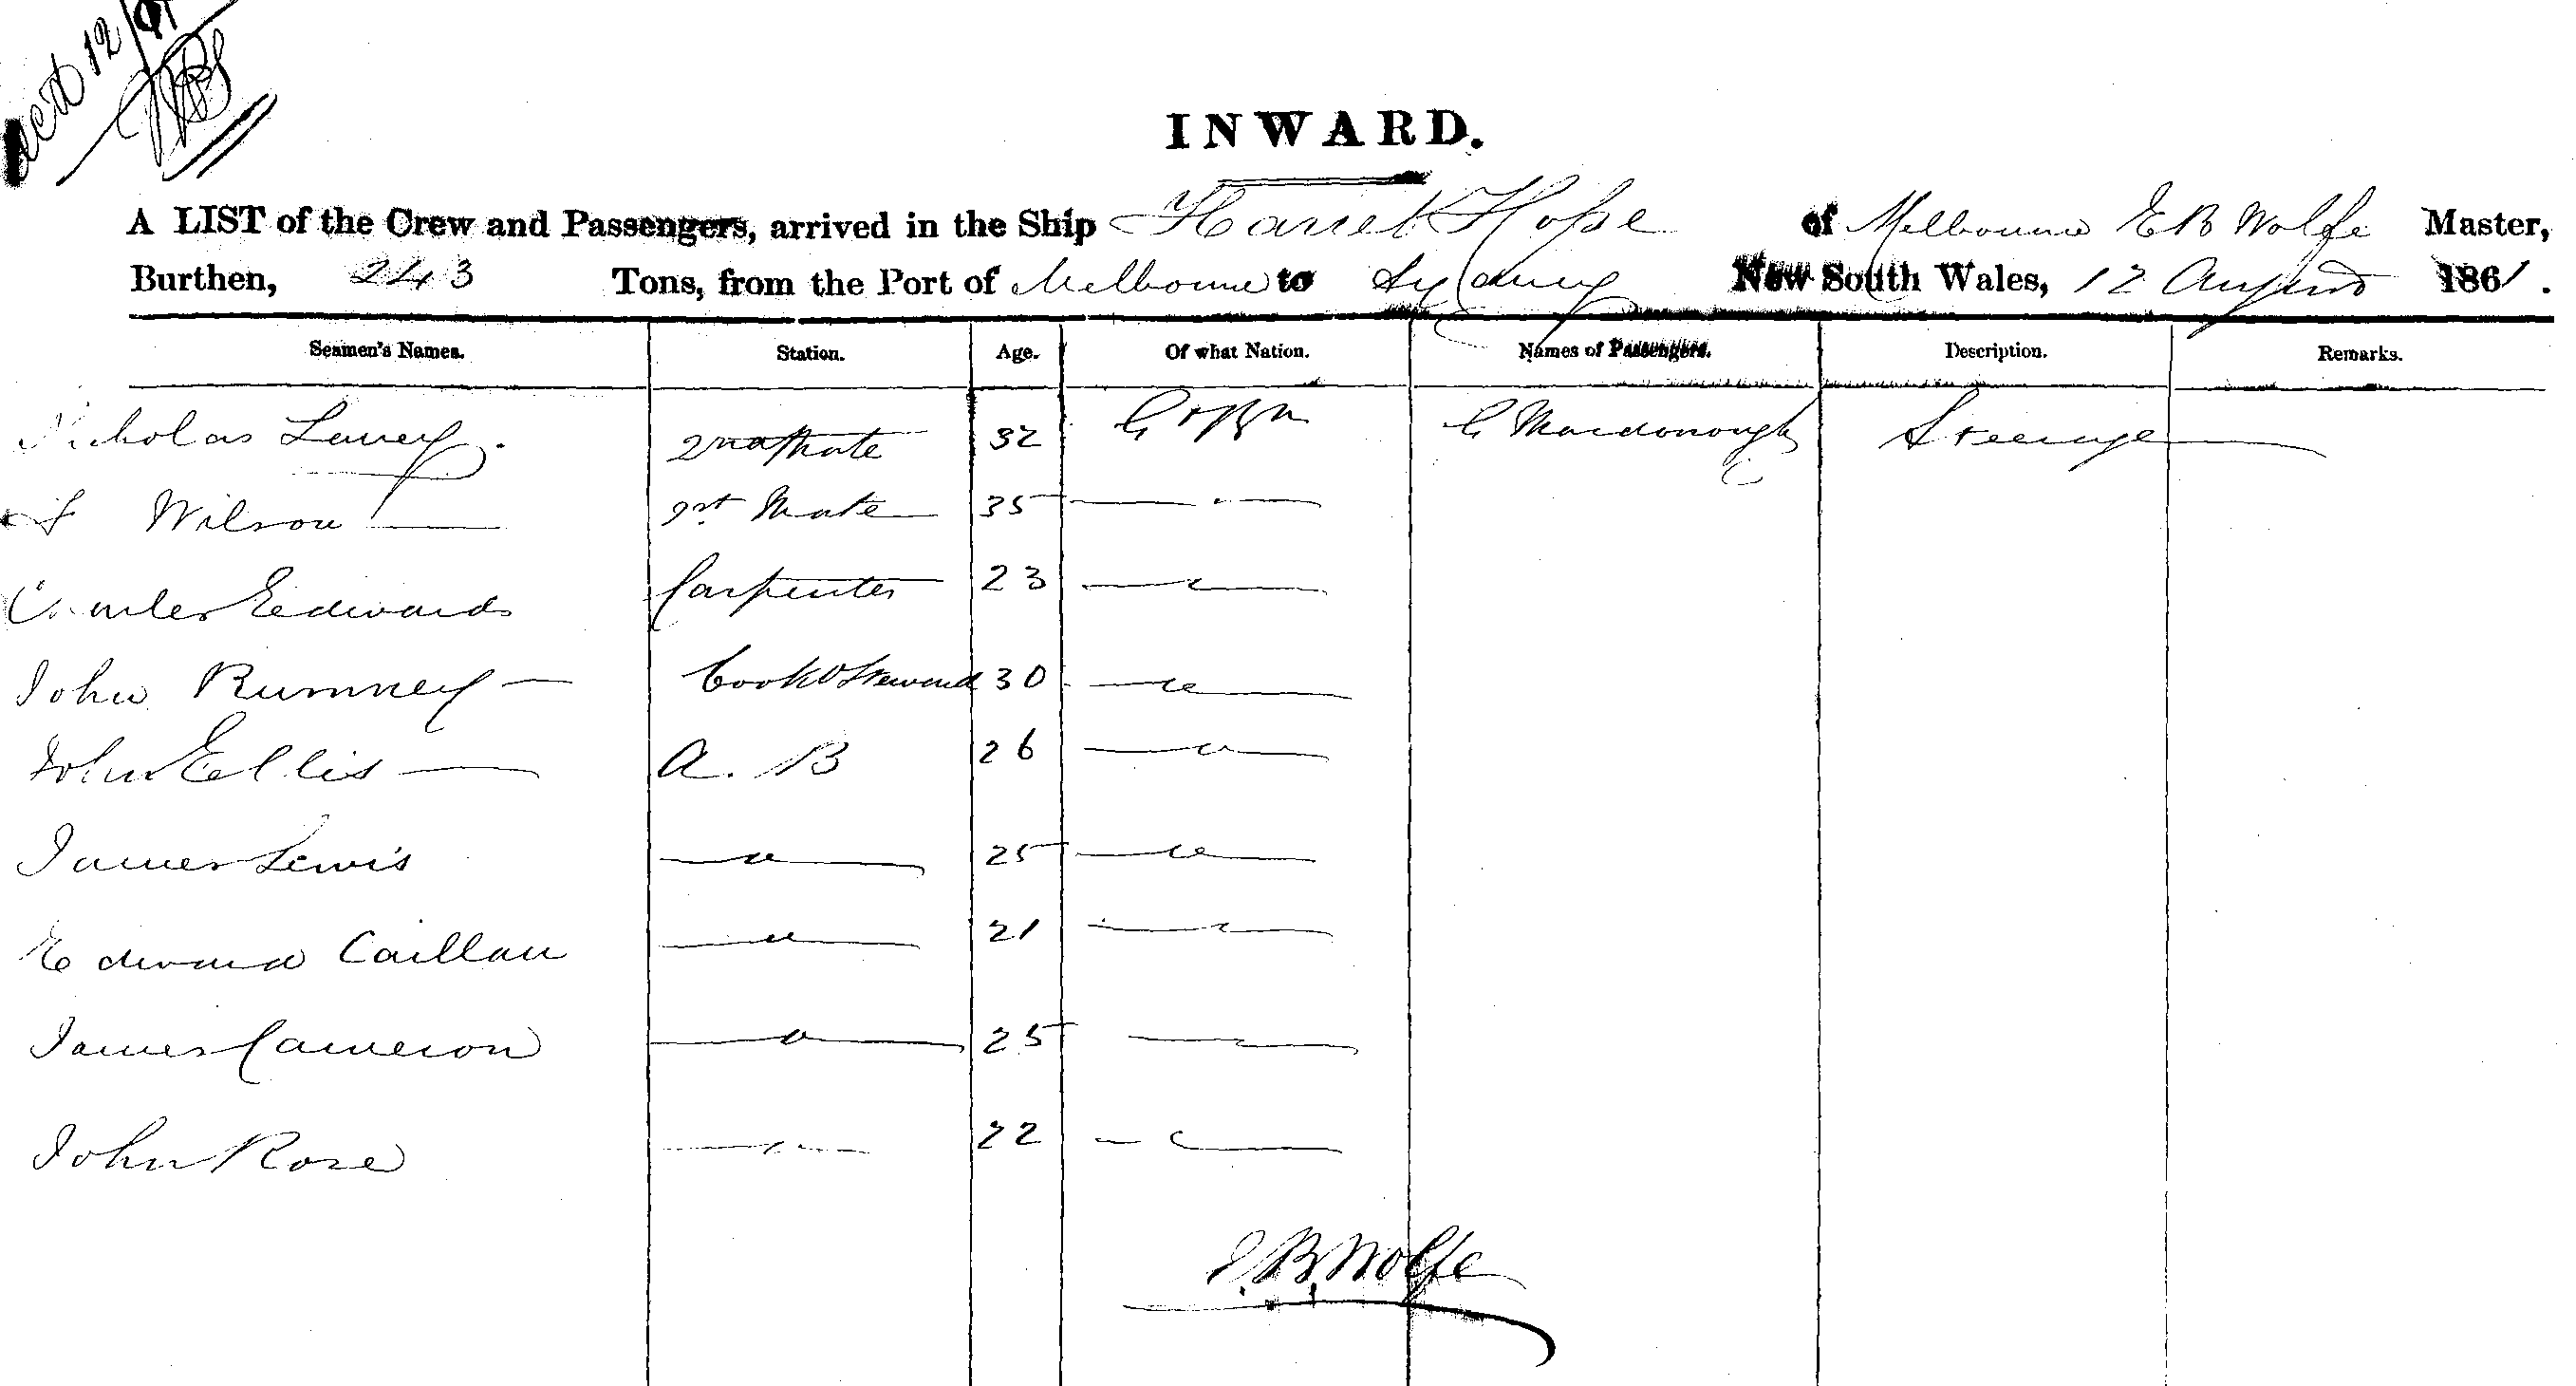 12/
INWARD.
A LIST of the Crew and Passengers, arrived in the Ship Harriet Hope of Melbourne E B Wolfe Master,
Burthen, 243 Tons, from the Port of Melbourne to Sydney New South Wales, 12 August 1861.
Seamen's Names. Station. Age. Of what Nation. Names of Passengers. Description. Remarks.
Nicholas 2nd Mate 32 G Macdonough Steerage
Wilson Mate 35
Charles Edwards Carpenter 23
John Rumney Cook & Steward 30
John Ellis A. B 26
James Lewis 25
Edward Caillau 21
James Cameron 25
John Rose 22
E.B. Wolfe